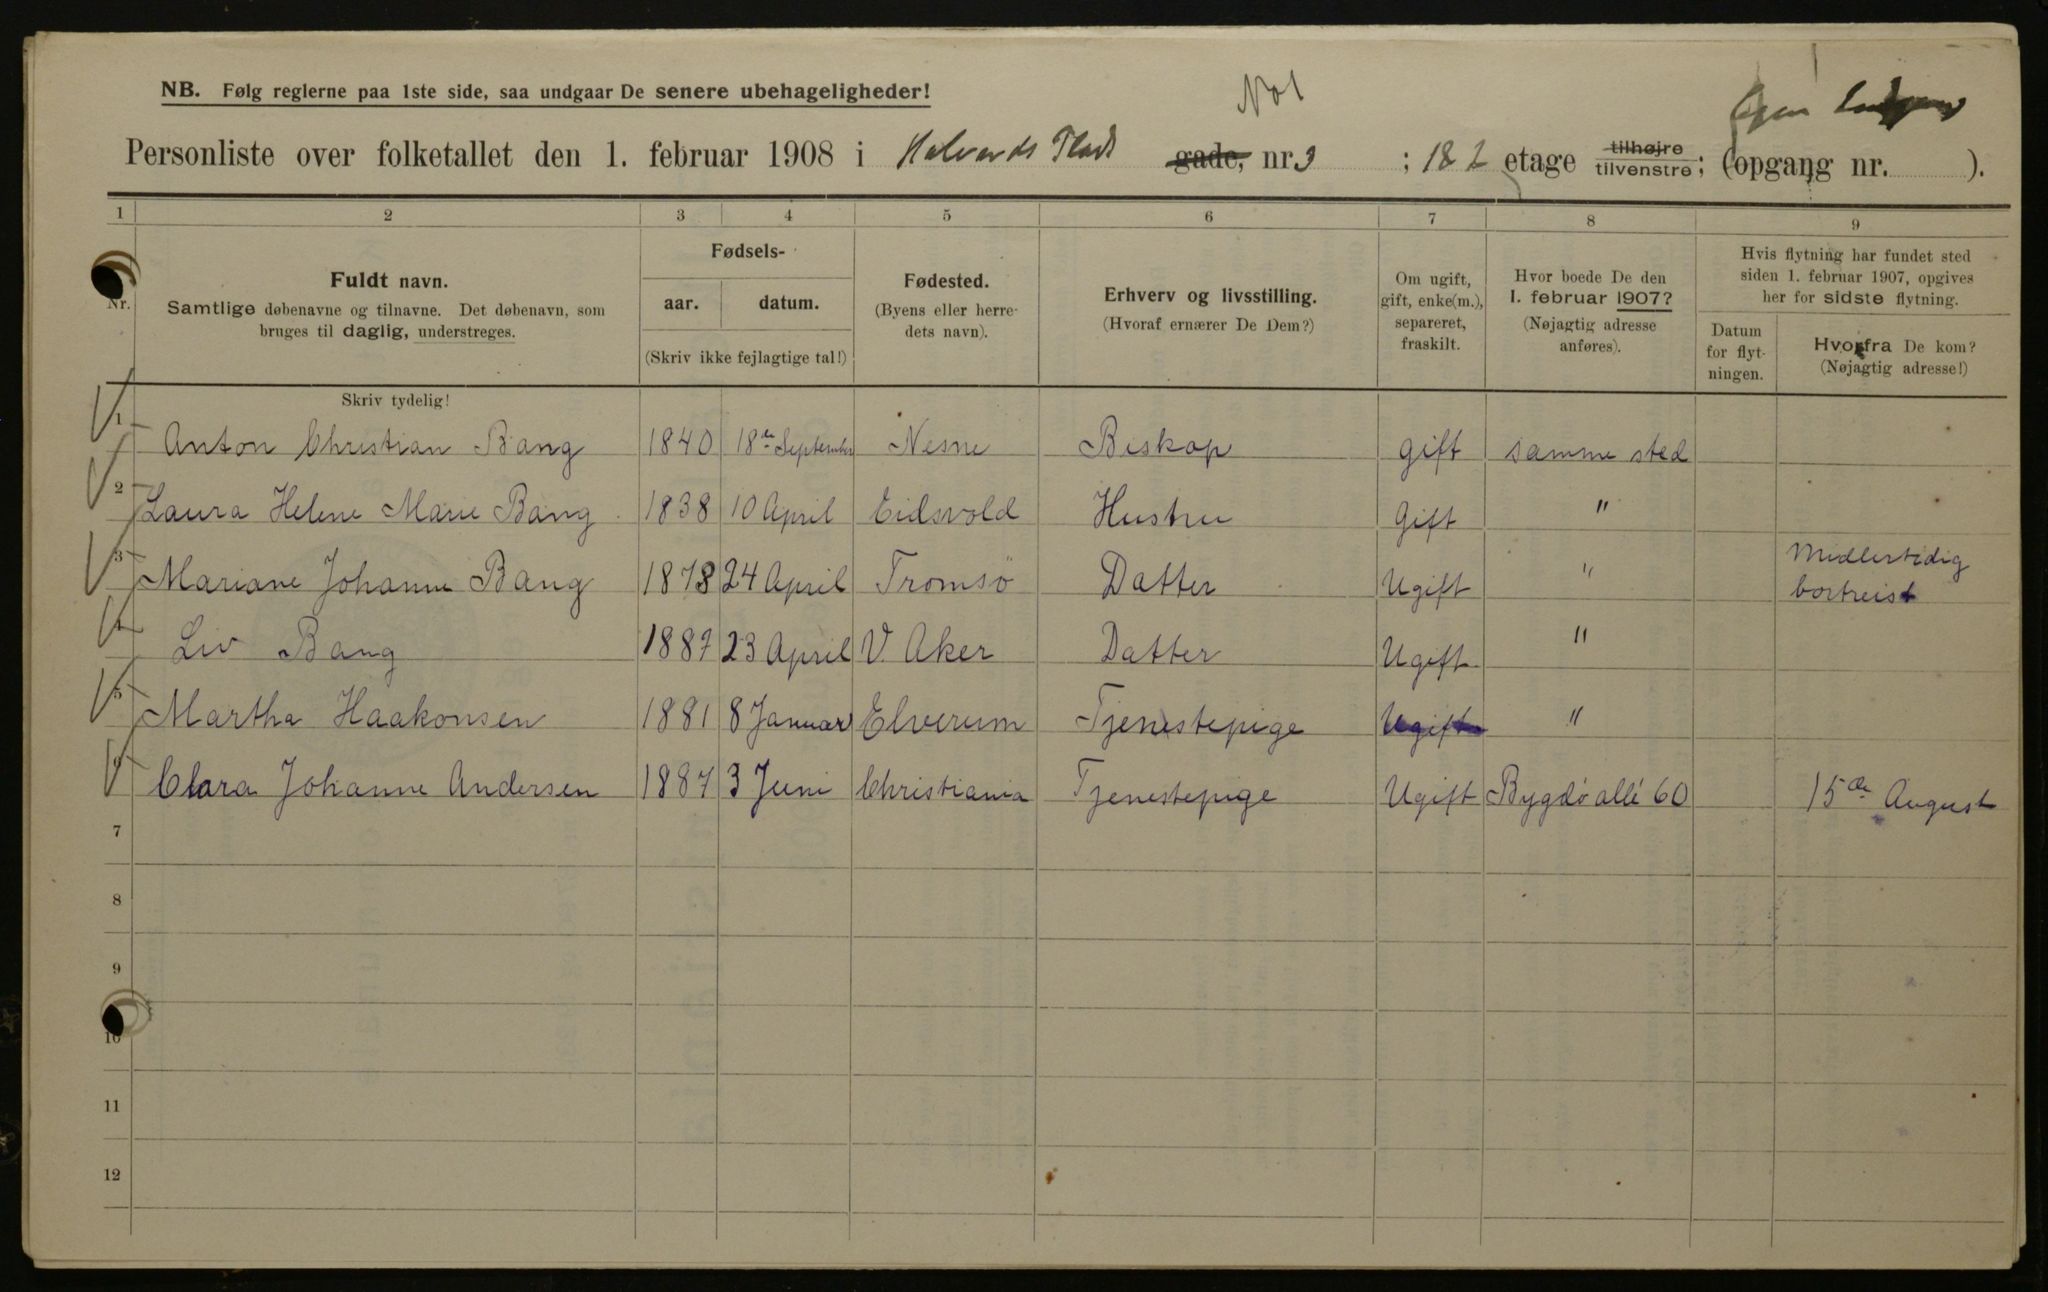 No 1
NB. Følg reglerne paa 1ste side, saa undgaar De senere ubehageligheder!
Personliste over folketallet den 1. februar 1908 i Halvards Plads gade, nr. 3 ; 1 & 2 etage tilhøjre tilvenstre; (opgang nr. ).
1 2 3 4 5 6 7 8 9
Nr.
Fuldt navn.
Samtlige døbenavne og tilnavne. Det døbenavn, som
bruges til daglig, understreges.
Fødsels-
aar. datum.
(Skriv ikke fejlagtige tal!)
Fødested.
(Byens eller herre-
dets navn).
Erhverv og livsstilling.
(Hvoraf ernærer De Dem?)
Om ugift,
gift, enke(m.),
separeret,
fraskilt.
Hvor boede De den
1. februar 1907?
(Nøjagtig adresse
anføres).
Hvis flytning har fundet sted
siden 1. februar 1907, opgives
her for sidste flytning.
Datum
for flyt-
ningen.
Hvorfra De kom?
(Nøjagtig adresse!)
Skriv tydelig!
1 Anton Christian Bang 1840 18de September Nesne Biskop gift samme sted
2 Laura Helene Marie Bang 1838 10 April Eidsvold Hustru Gift "
3 Mariane Johanne Bang 1878 24 April Tromsö Datter Ugift " Midlertidig
bortreist
4 Liv Bang 1887 23 April V. Aker Datter Ugift "
5 Martha Haakonsen 1881 8 Januar Elverum Tjenestepige Ugift "
6 Clara Johanne Andersen 1887 3 Juni Christiania Tjenestepige Ugift Bygdö allé 60 15de August
7
8
9
10
11
12